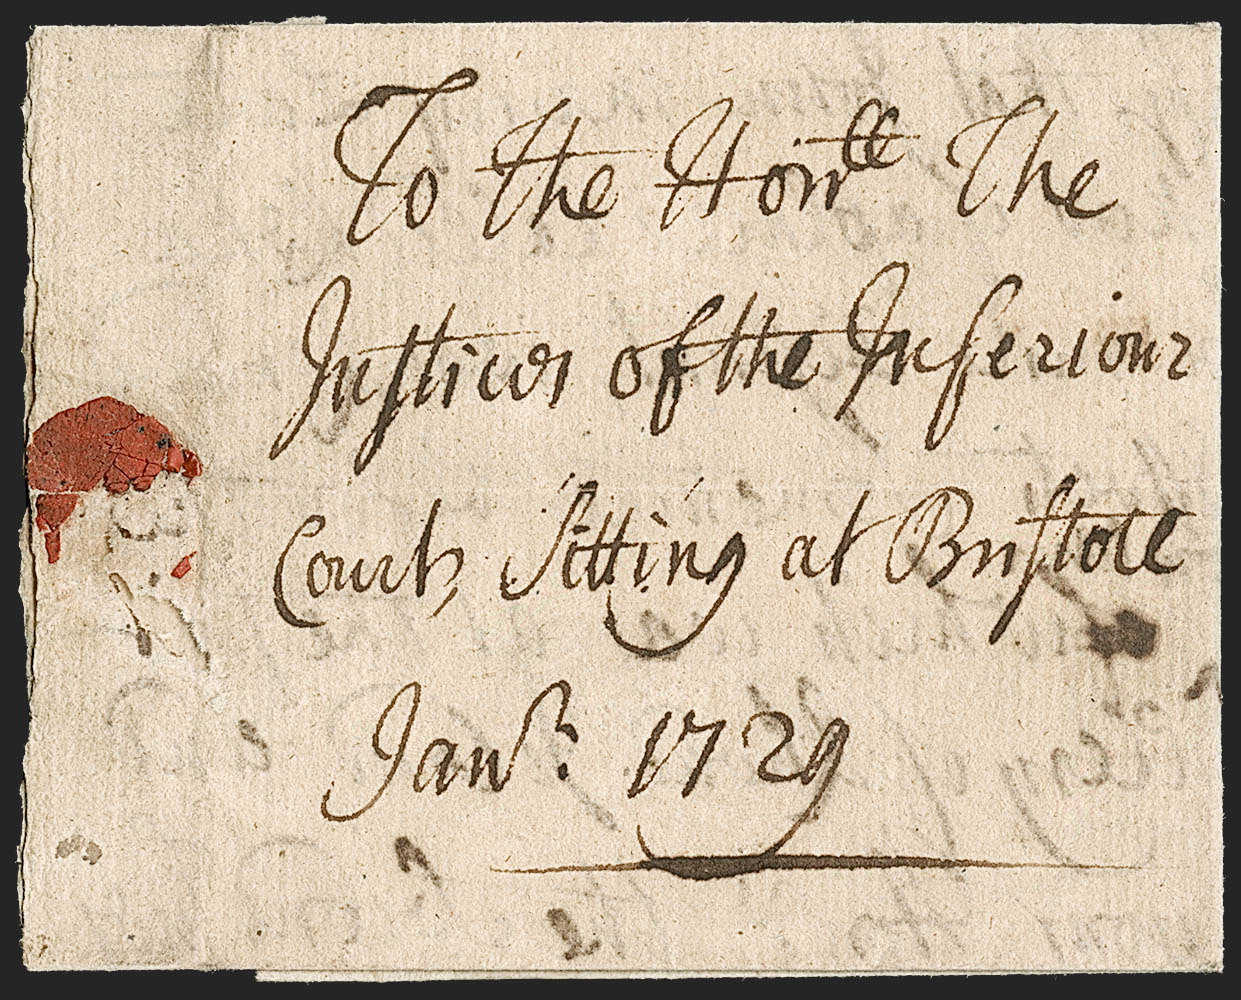 To the Honble The
Justices of the Inferiour
Court, Sitting at Bristoll
Janr: 1729